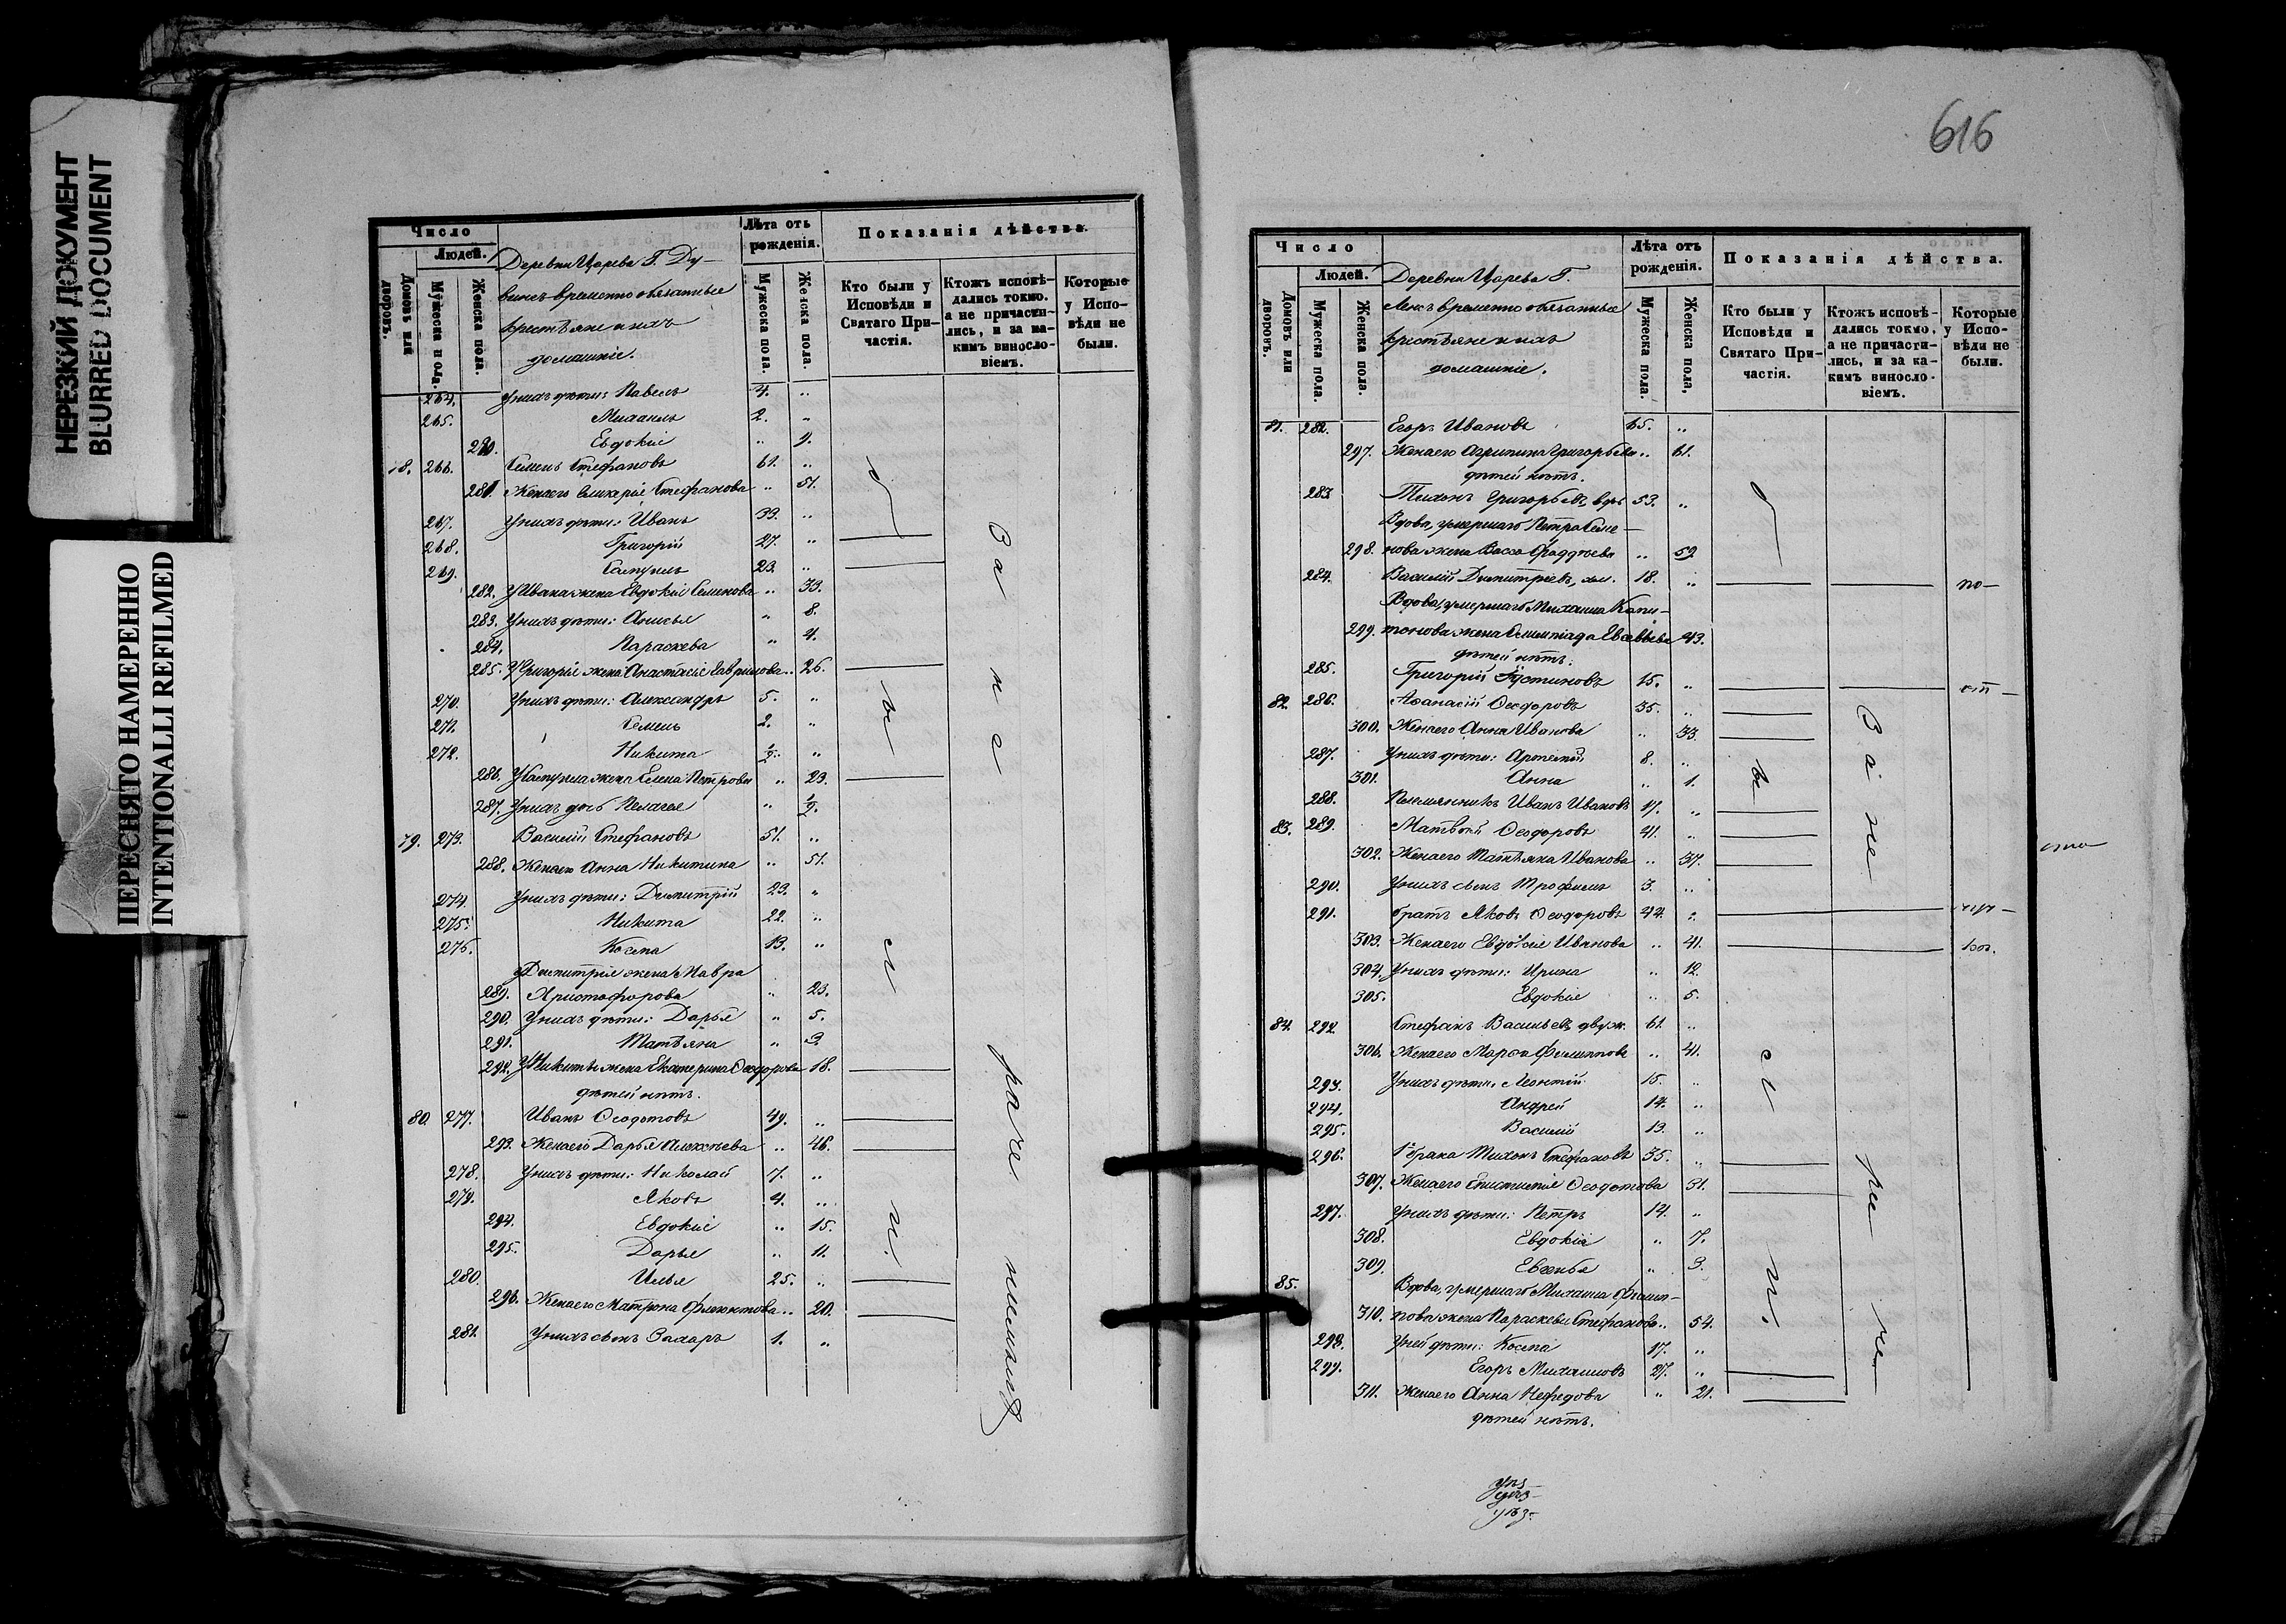 НЕРЕЗКИЙ ДОКУМЕНТ
BLURRED DOCUMENT
ПЕРЕСНЯТО НАМЕРЕННО
INTENTIONALLI REFILMED
Число
Людей.
Домовъ или дворовъ.
Мужеска пола.
Женска пола.
Деревни Царева Г. Ду-
временно обязанные
крестьяне и ихъ
домашніе.
Лѣта отъ рожденія.
Мужеска пола.
Женска пола.
Показанія дѣйства.
Кто были у Исповѣди и Святаго При-частія.
Ктожъ исповѣ-дались токмо, а не причасти-лись, и за ка-кимъ виносло-віемъ.
Которые у Испо-вѣди не были.
264. У нихъ дѣти: Павелъ 4. "
265. Михаилъ 2. "
280. Евдокія " 9.
78. 266. Семенъ Стефановъ 61. "
281. Жена его Гликерія Стефанова " 51.
267. У нихъ дѣти: Иванъ 33. "
268. Григорій 27. "
269. Самуилъ 23. "
282. У Ивана жена Евдокія Семенова " 33.
283. У нихъ дѣти: Анисья " 8.
284. Параскева " 4.
285. У Григорія жена Анастасія Гаврилова " 26.
270. У нихъ дѣти: Александръ 5. "
271. Семенъ 2. "
272. Никита ½. "
286. У Самуила жена Елена Петрова " 23.
287. У нихъ дочь Пелагея " ½.
79. 273. Василій Стефановъ 51. "
288. Жена его Анна Никитина " 51.
274. У нихъ дѣти: Димитрій 23. "
275. Никита 22. "
276. Косма 13. "
Димитрія жена Мавра
289. Христофорова " 23.
290. У нихъ дѣти: Дарья " 5.
291. Татьяна " 3.
292. У Никиты жена Екатерина Ѳеодорова 18.
дѣтей нѣтъ.
80. 277. Иванъ Ѳеодотовъ 49. "
293. Жена его Дарья Алексѣева " 46.
278. У нихъ дѣти: Николай 7. "
279. Яковъ 4. "
294. Евдокія " 15.
295. Дарья " 11.
280. Илья 25. "
296. Жена его Матрона Флегонтова " 20.
281. У нихъ сынъ Захаръ 1. "
616
Число
Людей.
Домовъ или дворовъ.
Мужеска пола.
Женска пола.
Деревни Царева Г.
временно обязанные
крестьяне и ихъ
домашніе.
Лѣта отъ рожденія.
Мужеска пола.
Женска пола.
Показанія дѣйства.
Кто были у Исповѣди и Святаго При-частія.
Ктожъ исповѣ-дались токмо, а не причасти-лись, и за ка-кимъ виносло-віемъ.
Которые у Испо-вѣди не были.
81. 282. Егоръ Ивановъ 65. "
297. Жена его Агрипина Григорьева " 61.
дѣтей нѣтъ.
283. Тихонъ Григорьевъ, вдов 53. "
Вдова, умершаго Петра Семе-
298. нова жена Васса Фаддѣева " 59
284. Василій Димитріевъ, хол. 18. "
Вдова, умершаго Михаила Капи-
299. тонова жена 43.
дѣтей нѣтъ.
285. Григорій Іустиновъ 15. "
82. 286. Аѳанасій Ѳеодоровъ 35. "
300. Жена его Анна Иванова " 33.
287. У нихъ дѣти: Артемій 8. "
301. Анна " 1.
288. Племянникъ Иванъ Ивановъ 17. "
83. 289. Матвѣй Ѳеодоровъ 41. "
302. Жена его Татьяна Иванова " 37.
290. У нихъ сынъ Трофимъ 3. "
291. братъ Яковъ Ѳеодоровъ 44. "
303. Жена его Евдокія Иванова " 41.
304. У нихъ дѣти: Ирина " 12.
305. Евдокія " 5.
84. 292. Стефанъ Васильевъ, двуж. 61. "
306. Жена его Марѳа Филиппова " 41.
293. У нихъ дѣти: Леонтій 15. "
294. Андрей 14. "
295. Василій 13. "
296. 1го брака Тихонъ Стефановъ 35. "
307. Жена его Епистимія Ѳеодотова 31.
297. У нихъ дѣти: Петръ 14. "
308. Евдокія " 7.
309. " 3.
85. Вдова, умершаго Михаила Филип-
310. пова жена Параскева Стефанова " 54.
298. У ней дѣти: Косма 17. "
299. Егоръ Михаиловъ 27. "
311. Жена его Анна Нефедова " 21.
дѣтей нѣтъ.